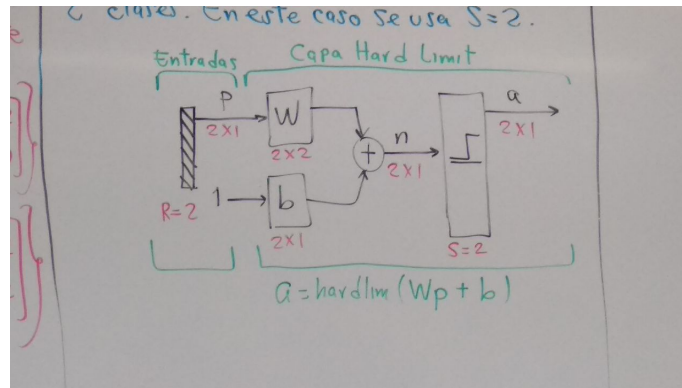 2 clases. En este caso se usa S=2.
Entradas
Capa Hard Limit
P
W
a
2x1
2x2
+
n
2x1
2x1
R=2
1
b
2x1
S=2
a=hardlim(Wp+b)